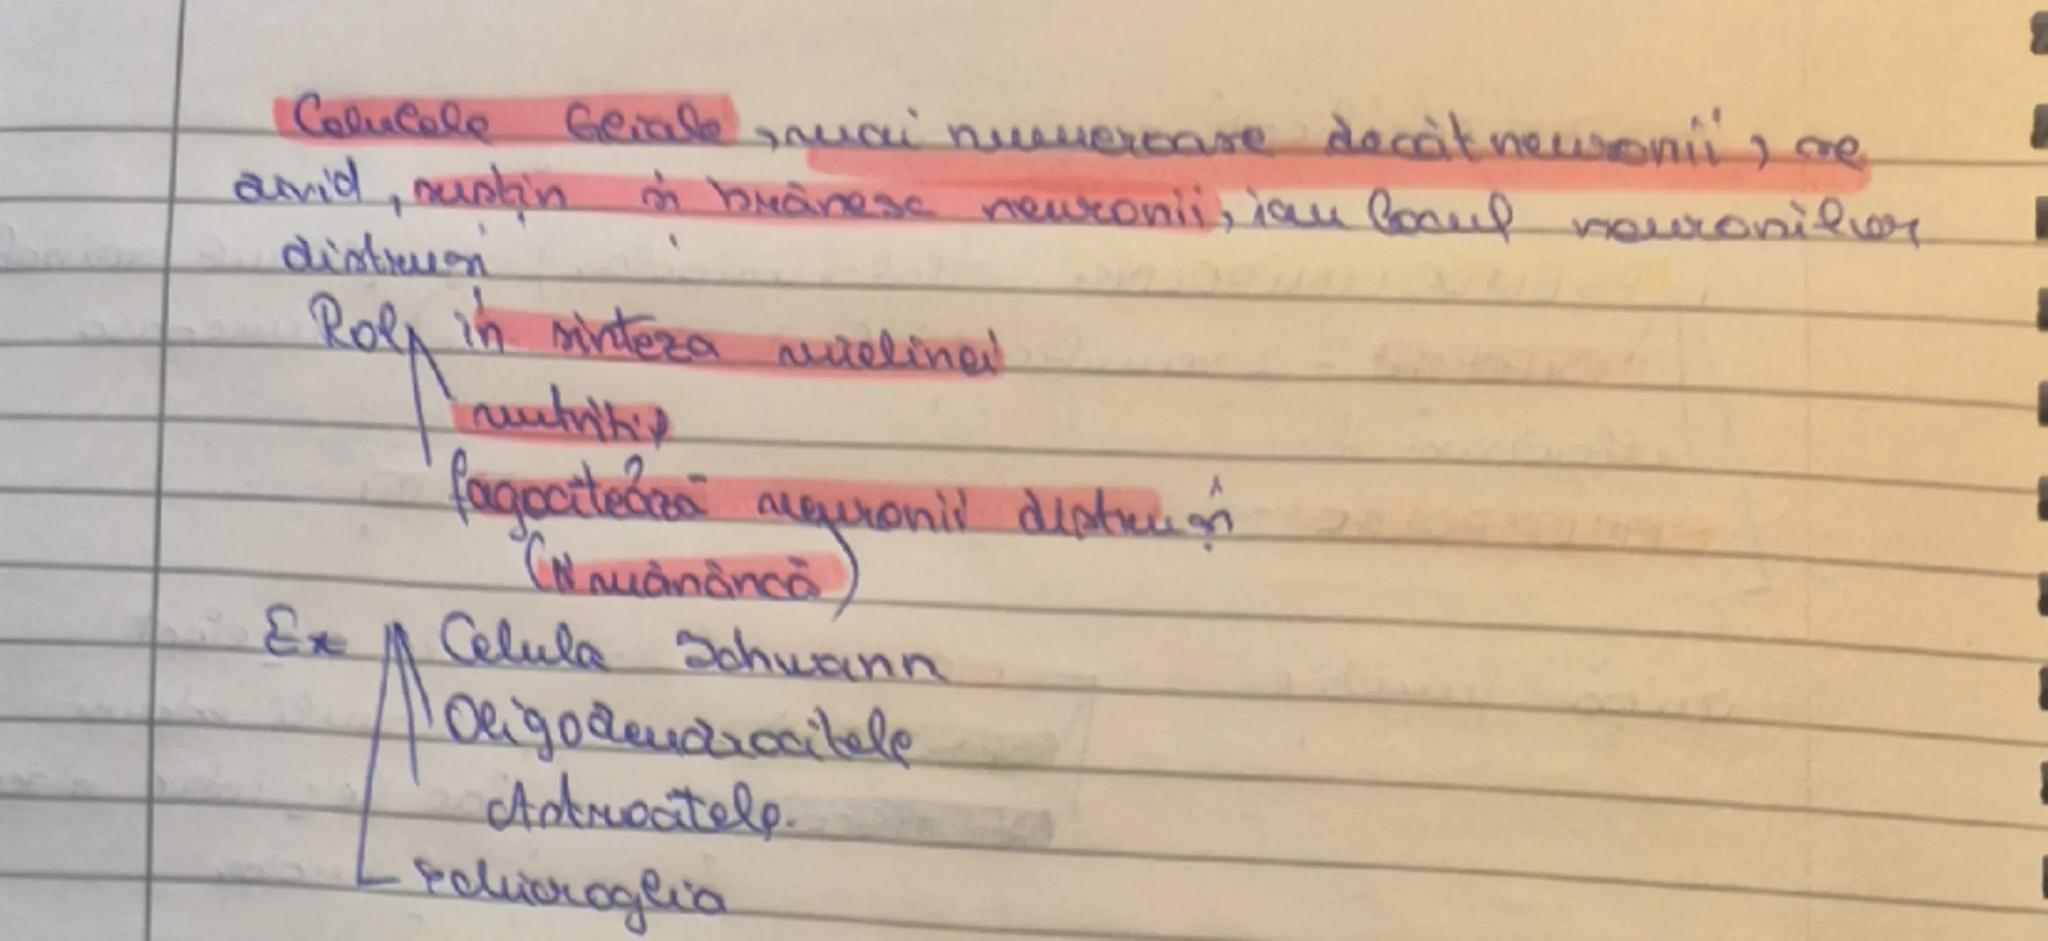 Celulele Gliale, mai numeroase decât neuronii, se
divid, susțin și hrănesc neuronii, iau locul neuronilor
distruși
Rol în sinteza mielinei
nutritiv
fagocitează neuronii distruși
(îi mănâncă)
Ex Celula Schwann
Oligodendrocitele
Astrocitele.
Microglia